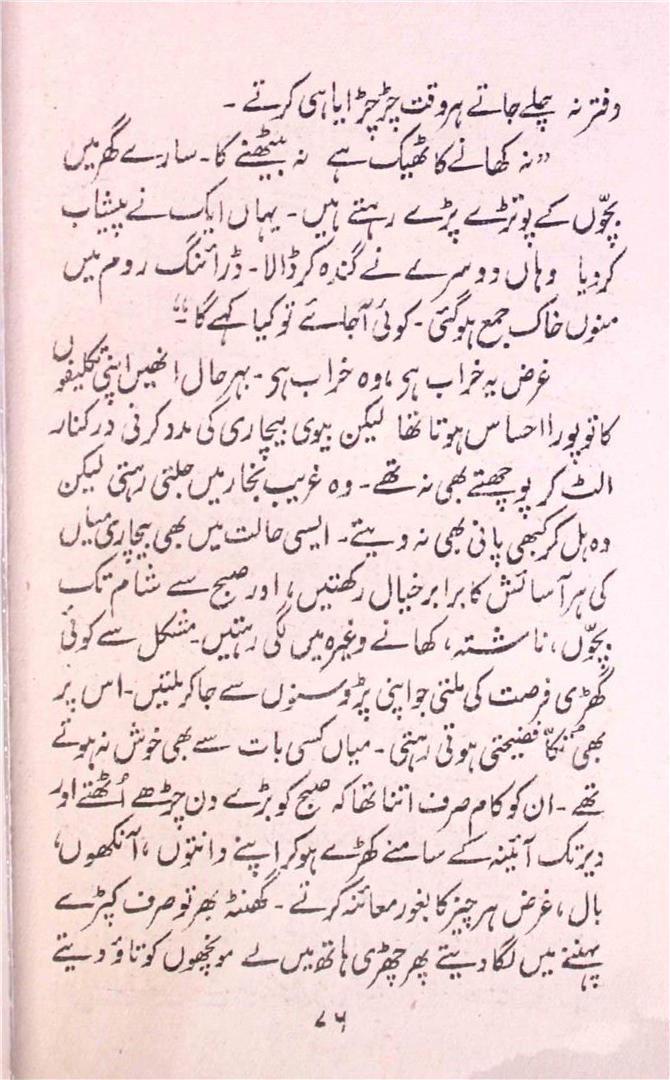 دفتر نہ چلے جاتے ہر وقت چڑچڑایا ہی کرتے ۔
”نہ کھانے کا ٹھیک ہے نہ بیٹھنے کا ۔ سارے گھر میں
بچّوں کے پوتڑے پڑے رہتے ہیں ۔ یہاں ایک نے پیشاب
کر دیا وہاں دوسرے نے گندہ کر ڈالا ۔ ڈرائنگ روم میں
منوں خاک جمع ہو گئی ۔ کوئی آجائے تو کیا کہے گا ۔“
غرض یہ خراب ہی ، وہ خراب ہی ۔ بہرحال انھیں اپنی تکلیفوں
کا تو پورا احساس ہوتا تھا لیکن بیوی بیچاری کی مدد کرنی درکنار
الٹ کر پوچھتے بھی نہ تھے ۔ وہ غریب بخار میں جلتی رہتی لیکن
وہ ہل کر کبھی پانی بھی نہ دیتے ۔ ایسی حالت میں بھی بیچاری میاں
کی ہر آسائش کا برابر خیال رکھتیں ، اور صبح سے شام تک
بچّوں ، ناشتہ ، کھانے وغیرہ میں لگی رہتیں ۔ مشکل سے کوئی
گھڑی فرصت کی ملتی جو اپنی پڑوسنوں سے جاکر ملتیں ۔ اس پر
بھی تُکّا فضیحتی ہوتی رہتی ۔ میاں کسی بات سے بھی خوش نہ ہوتے
تھے ۔ ان کو کام صرف اتنا تھا کہ صبح کو بڑے دن چڑھے اُٹھتے اور
دیر تک آئینہ کے سامنے کھڑے ہوکر اپنے دانتوں ، آنکھوں ،
بال ، غرض ہر چیز کا بغور معائنہ کرتے ۔ گھنٹہ بھر تو صرف کپڑے
پہننے میں لگا دیتے پھر چھڑی ہاتھ میں لے مونچھوں کو تاؤ دیتے
۷۶